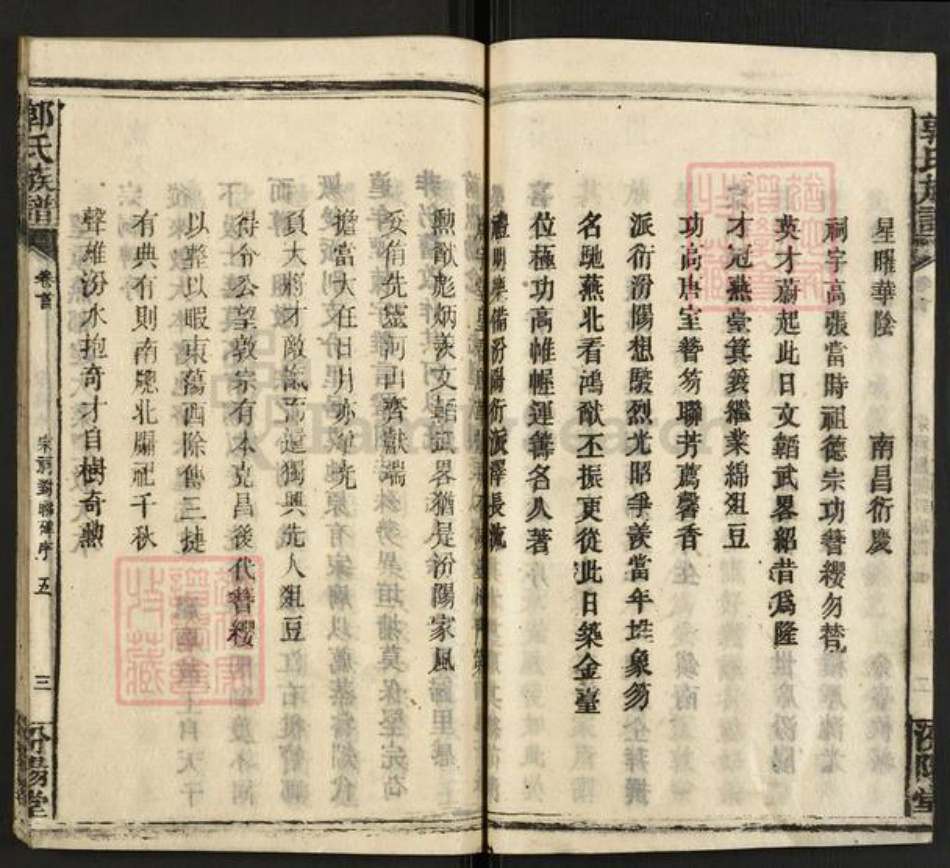 郭氏族譜
汾陽堂
星曜華陰　南昌衍慶
祠宇高張當時祖德宗功簪纓勿替
英才蔚起此日文韜武畧紹昔爲隆
才冠燕臺箕裘繼業綿俎豆
功高唐室簪笏聯芳薦馨香
派衍汾陽想駿烈光昭爭羡當年堆象笏
名馳燕北看鴻猷丕振更從此日築金臺
位極功高帷幄運籌名久著
禮明樂備汾陽衍派澤長流
勲猷彪炳羨文韜武畧猶是汾陽家風
妥侑先靈河山齊獻瑞
擔當大任日月亦爭光
負大將才敵愾而還獨興先人俎豆
得令公望敦宗有本克昌後代簪纓
以整以暇東蕩西除傳三捷
有典有則南牕北牖祀千秋
聲雄汾水抱奇才自樹奇勲
郭氏族譜
卷首
宗祠對聯碑序
五
三
汾陽堂